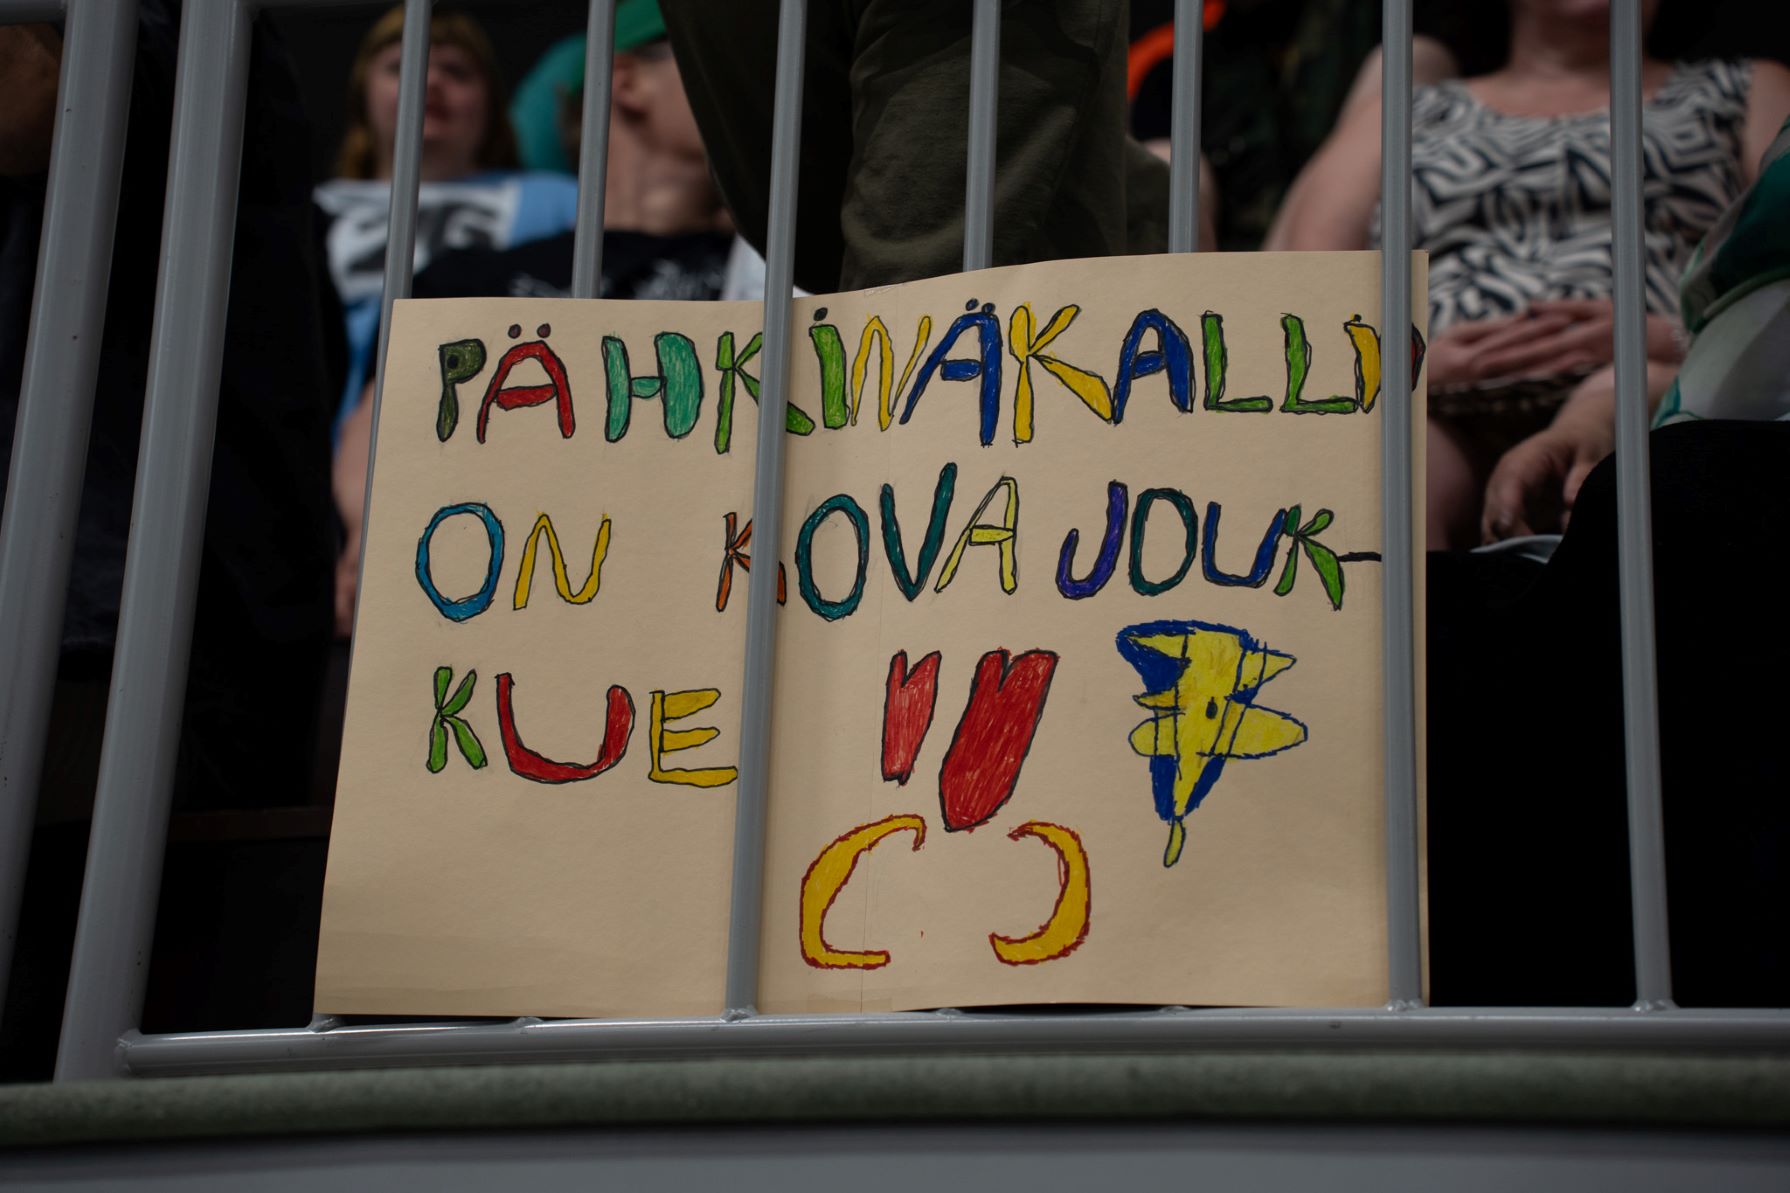 PÄHKINÄKALLIO
ON KOVA JOUK-
KUE